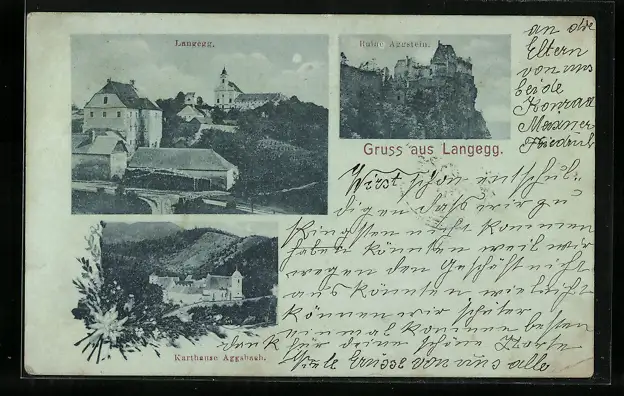 Langegg.
Ruine Aggstein.
Gruss aus Langegg.
Karthause Aggsbach.
an die
Eltern
von uns
beide
Konrad
Meixner
Friedrich
Wirst schon entschul-
digen dass wir zu
Kingsten nicht kommen
haben können weil wir
wegen den Geschäft nicht
aus könnten vieleicht
können wir später
einmal kommen besten
dank für deine schöne Karte
Viele Grüsse von uns alle